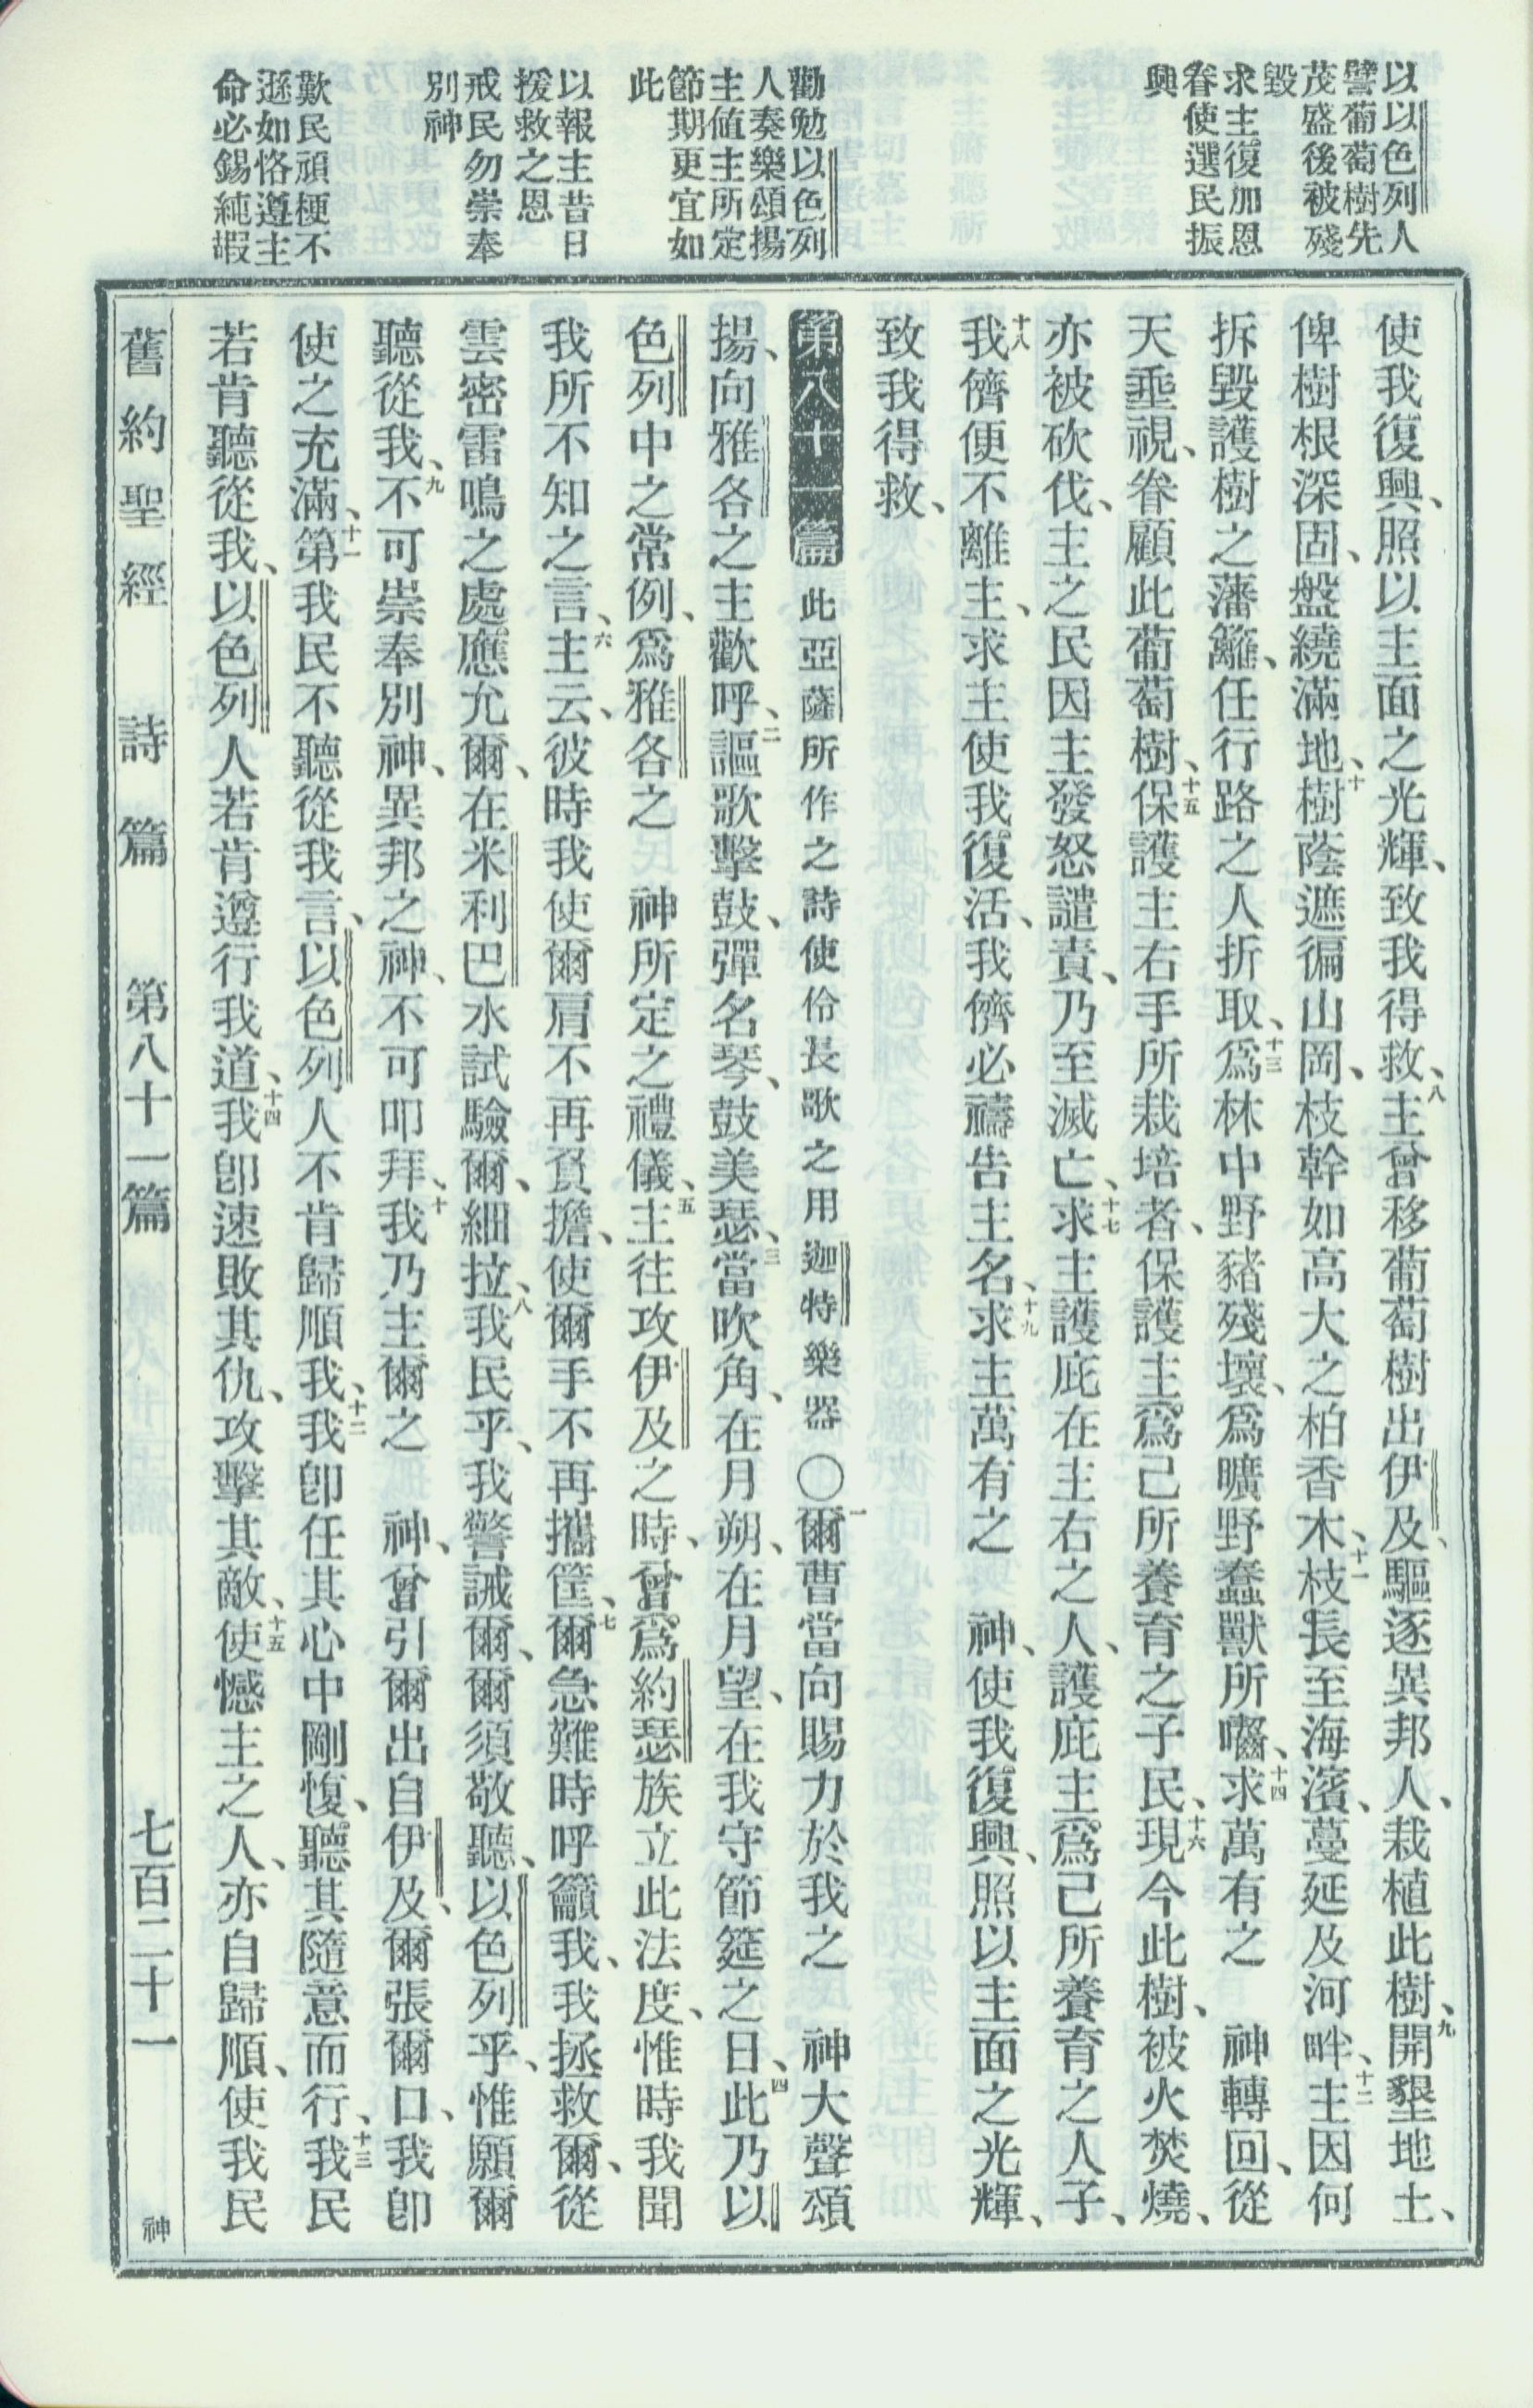 以以色列人
譬葡萄樹先
茂盛後被殘
毀
求主復加恩
眷使選民振
興
勸勉以色列
人奏樂頌揚
主値主所定
節期更宜如
此
以報主昔日
援救之恩
戒民勿崇奉
別神
歎民頑梗不
遜如恪遵主
命必錫純嘏
使我復興、照以主面之光輝、致我得救、八主曾移葡萄樹出伊及、驅逐異邦人、栽植此樹、九開墾地土、
俾樹根深固、盤繞滿地、十樹蔭遮徧山岡、枝幹如高大之柏香木、十一枝長至海濱、蔓延及河畔、十二主因何
拆毀護樹之藩籬、任行路之人折取、十三爲林中野豬殘壞、爲曠野蠢獸所嚙、十四求萬有之　神轉回、從
天垂視、眷顧此葡萄樹、十五保護主右手所栽培者、保護主爲己所養育之子民、十六現今此樹、被火焚燒、
亦被砍伐、主之民因主發怒譴責、乃至滅亡、十七求主護庇在主右之人、護庇主爲己所養育之人子、
十八我儕便不離主、求主使我復活、我儕必禱告主名、十九求主萬有之　神、使我復興、照以主面之光輝、
致我得救、
第八十一篇　此亞薩所作之詩使伶長歌之用迦特樂器　〇一爾曹當向賜力於我之　神大聲頌
揚、向雅各之主歡呼、二謳歌擊鼓、彈名琴、鼓美瑟、三當吹角、在月朔、在月望、在我守節筵之日、四此乃以
色列中之常例、爲雅各之　神所定之禮儀、五主往攻伊及之時、曾爲約瑟族立此法度、惟時我聞
我所不知之言、六主云、彼時我使爾肩不再負擔、使爾手不再攜筐、七爾急難時呼籲我、我拯救爾、從
雲密雷鳴之處應允爾、在米利巴水試驗爾、細拉、八我民乎、我警誡爾、爾須敬聽、以色列乎、惟願爾
聽從我、九不可崇奉別神、異邦之神、不可叩拜、十我乃主爾之　神、曾引爾出自伊及、爾張爾口、我卽
使之充滿、十一第我民不聽從我言、以色列人不肯歸順我、十二我卽任其心中剛愎、聽其隨意而行、十三我民
若肯聽從我、以色列人若肯遵行我道、十四我卽速敗其仇、攻擊其敵、十五使憾主之人、亦自歸順、使我民
舊約聖經　詩篇　第八十一篇　七百二十一　神